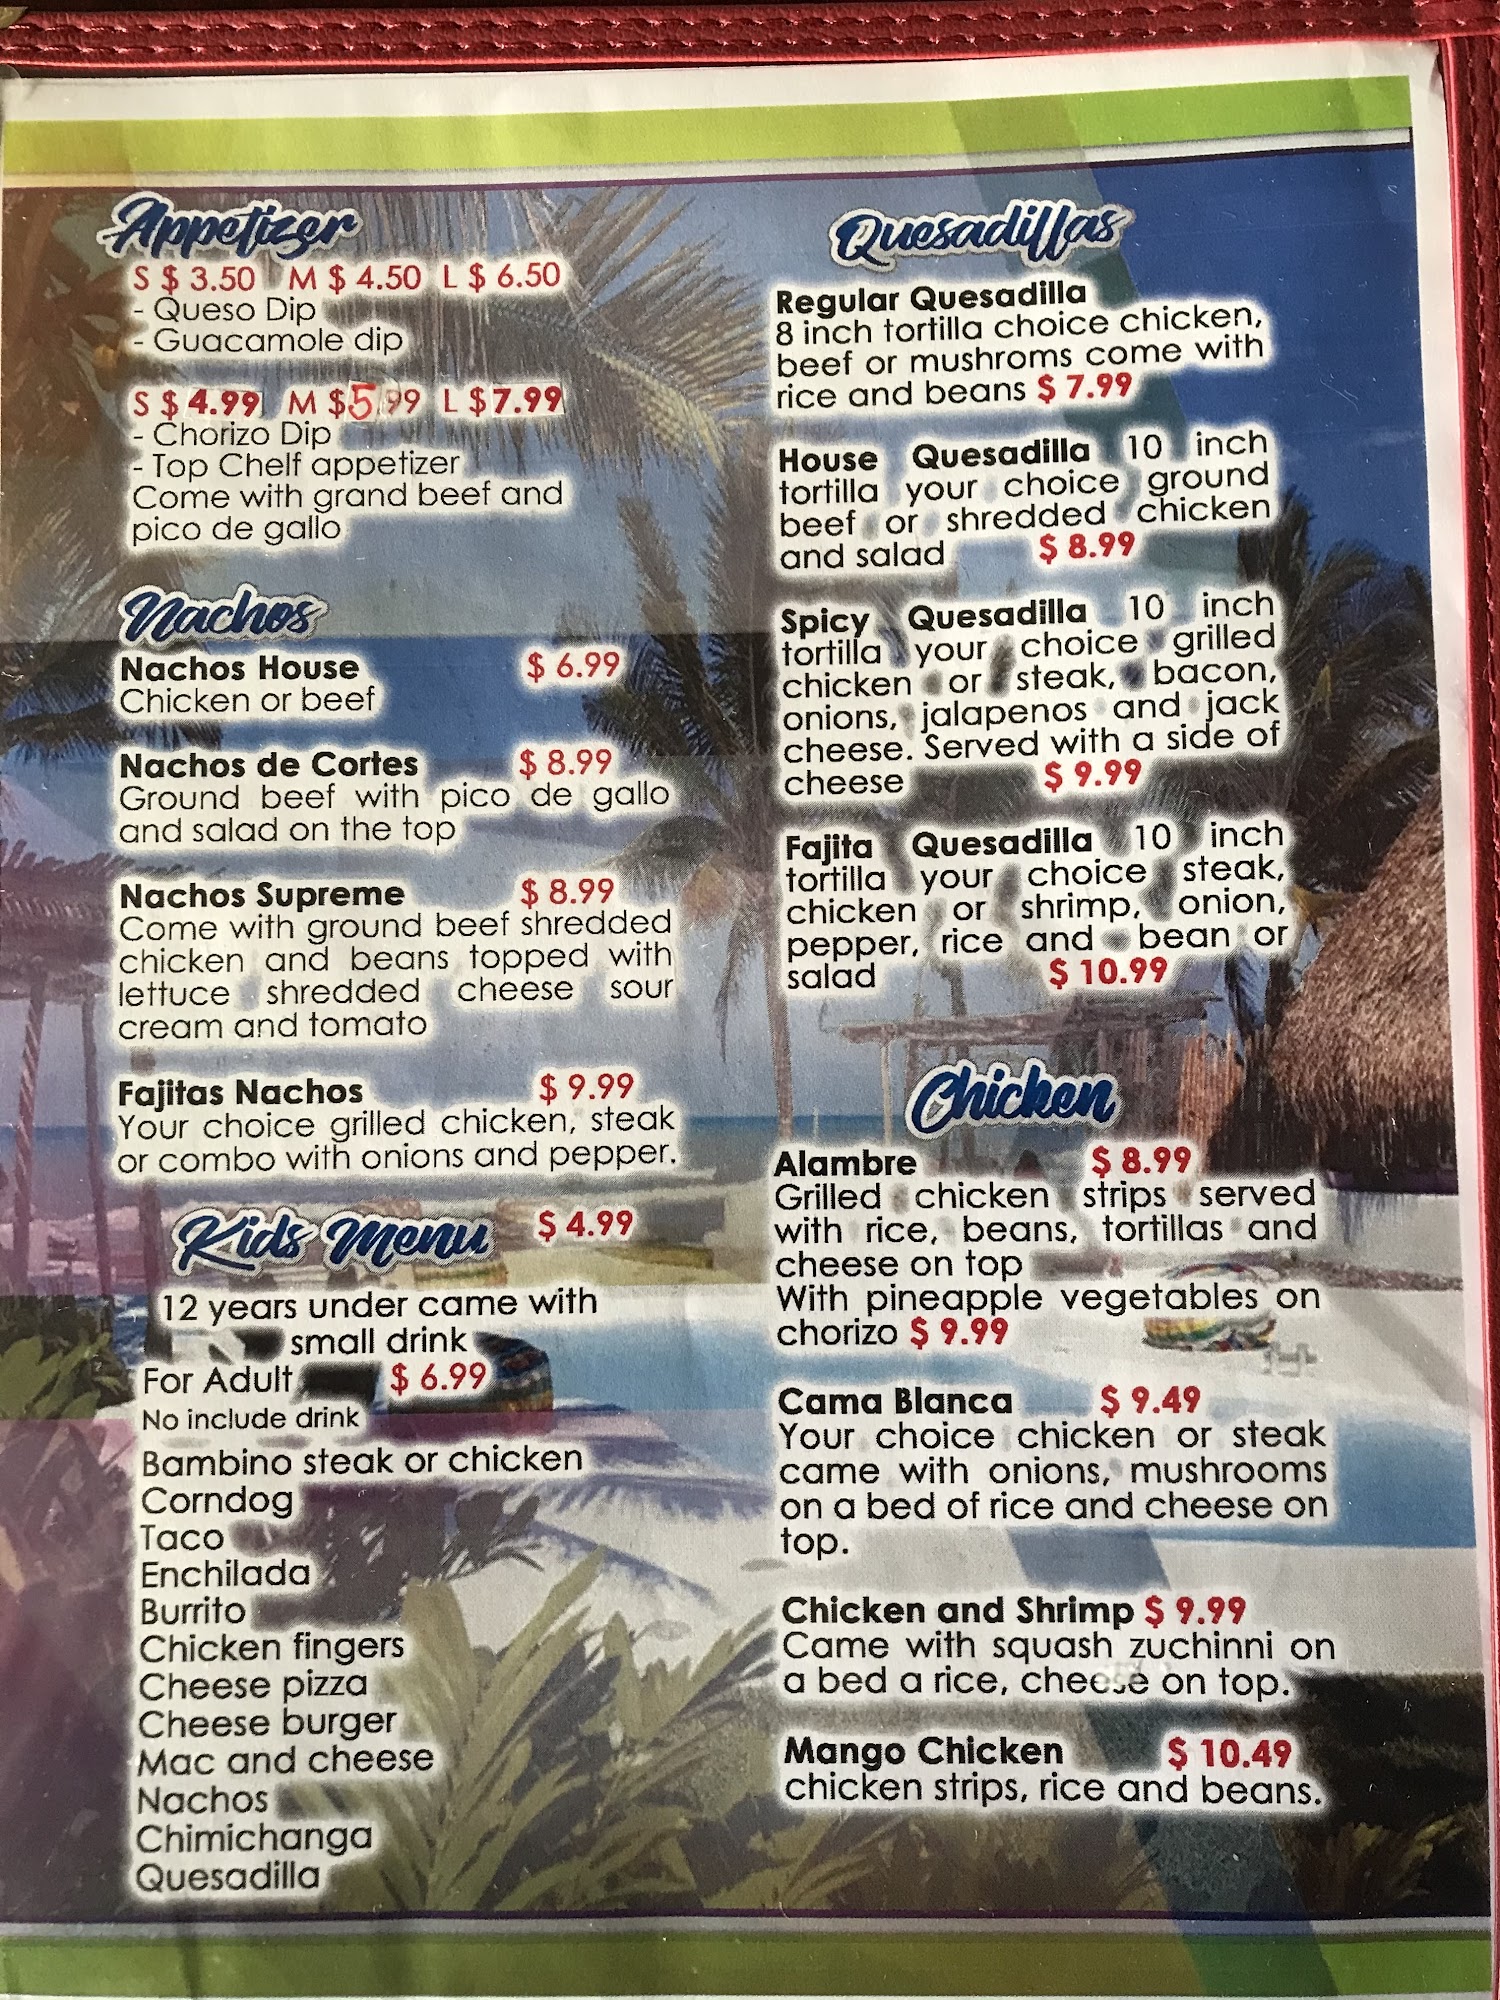 Appetizer
S $ 3.50 M $ 4.50 L $ 6.50
- Queso Dip
- Guacamole dip
S $ 4.99 M $5.99 L $7.99
- Chorizo Dip
- Top Chelf appetizer
Come with grand beef and
pico de gallo
Nachos
Nachos House $ 6.99
Chicken or beef
Nachos de Cortes $ 8.99
Ground beef with pico de gallo
and salad on the top
Nachos Supreme $ 8.99
Come with ground beef shredded
chicken and beans topped with
lettuce shredded cheese sour
cream and tomato
Fajitas Nachos $ 9.99
Your choice grilled chicken, steak
or combo with onions and pepper.
Kids Menu $ 4.99
12 years under came with
small drink
For Adult $ 6.99
No include drink
Bambino steak or chicken
Corndog
Taco
Enchilada
Burrito
Chicken fingers
Cheese pizza
Cheese burger
Mac and cheese
Nachos
Chimichanga
Quesadilla
Quesadillas
Regular Quesadilla
8 inch tortilla choice chicken,
beef or mushroms come with
rice and beans $ 7.99
House Quesadilla 10 inch
tortilla your choice ground
beef or shredded chicken
and salad $ 8.99
Spicy Quesadilla 10 inch
tortilla your choice grilled
chicken or steak, bacon,
onions, jalapenos and jack
cheese. Served with a side of
cheese $ 9.99
Fajita Quesadilla 10 inch
tortilla your choice steak,
chicken or shrimp, onion,
pepper, rice and bean or
salad $ 10.99
Chicken
Alambre $ 8.99
Grilled chicken strips served
with rice, beans, tortillas and
cheese on top
With pineapple vegetables on
chorizo $ 9.99
Cama Blanca $ 9.49
Your choice chicken or steak
came with onions, mushrooms
on a bed of rice and cheese on
top.
Chicken and Shrimp $ 9.99
Came with squash zuchinni on
a bed a rice, cheese on top.
Mango Chicken $ 10.49
chicken strips, rice and beans.